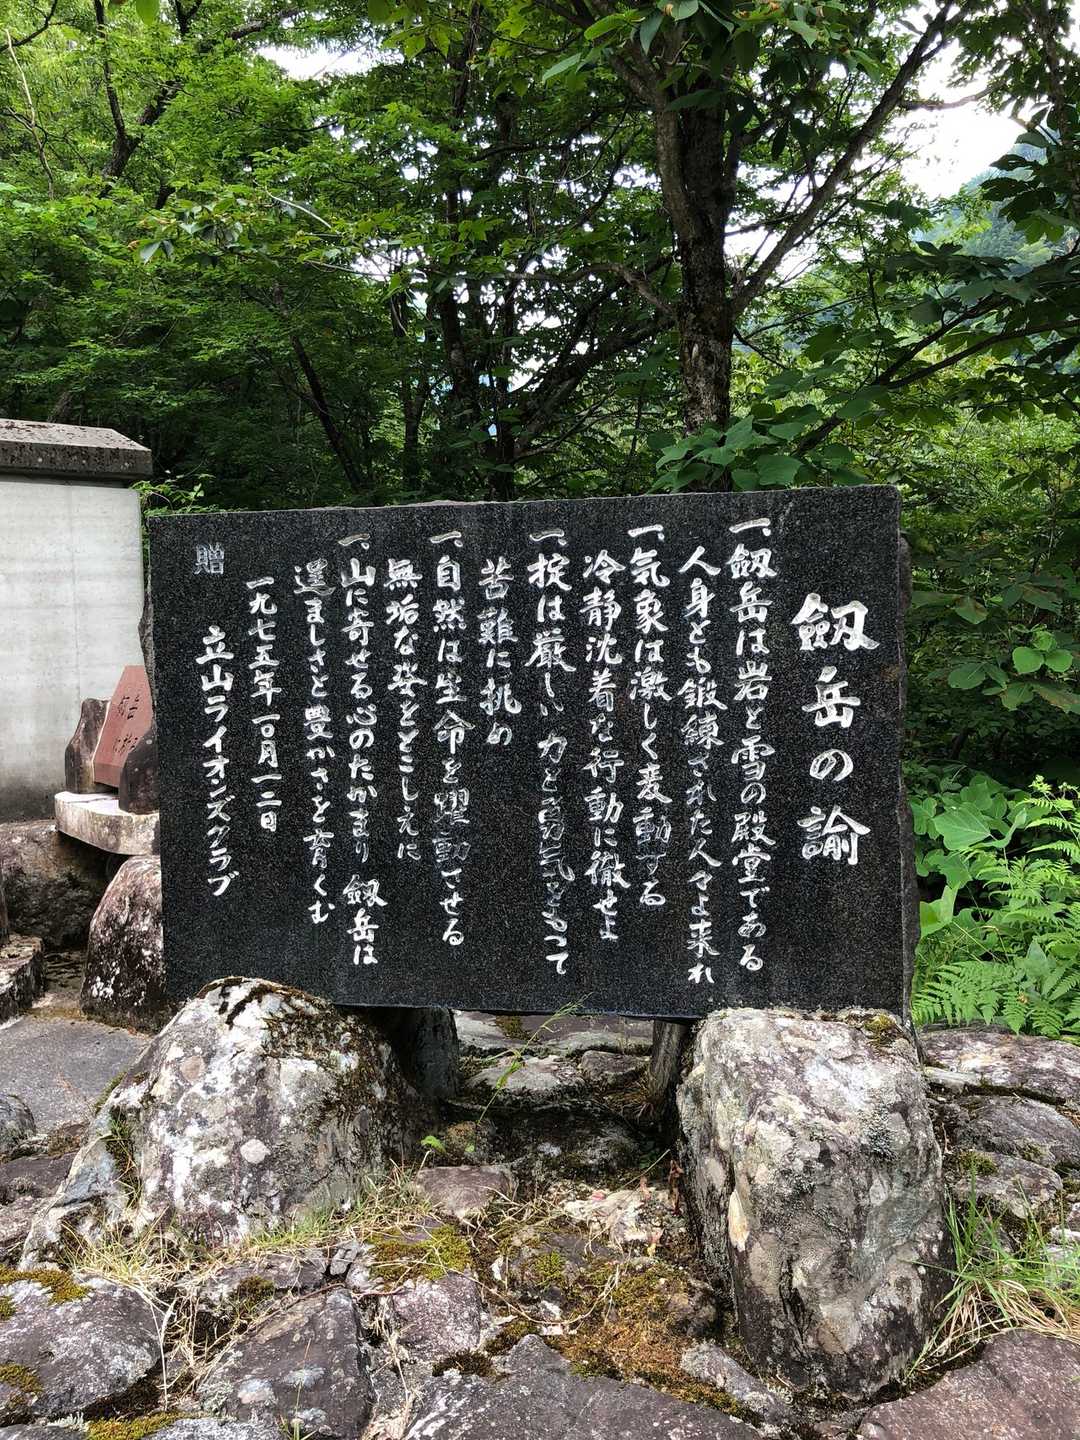 劔岳の諭
一、劔岳は岩と雪の殿堂である
人身とも鍛練された人々よ来れ
一、気象は激しく変動する
冷静沈着な行動に徹せよ
一、掟は厳しい力と勇気をもって
苦難に挑め
一、自然は生命を躍動させる
無垢な姿をとこしえに
一、山に寄せる心のたかまり 劔岳は
逞ましさと豊かさを育くむ
一九七五年一〇月一二日
贈 立山ライオンズクラブ